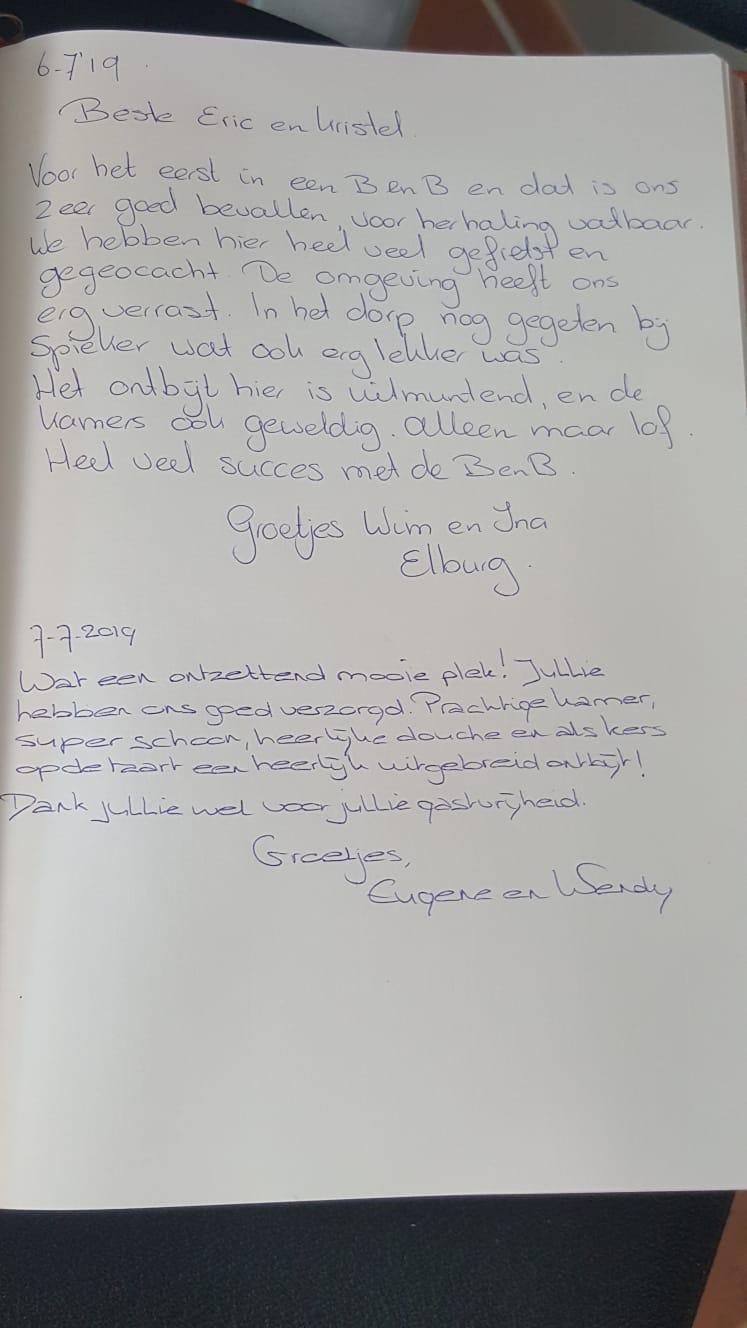 6-7'19.
Beste Eric en Kristel.
Voor het eerst in een B en B en dat is ons
zeer goed bevallen, voor herhaling vatbaar.
We hebben hier heel veel gefietst en
gegeocacht. De omgeving heeft ons
erg verrast. In het dorp nog gegeten bij
Spieker wat ook erg lekker was.
Het ontbijt hier is uitmuntend, en de
kamers ook geweldig. Alleen maar lof.
Heel veel succes met de BenB.
Groetjes Wim en Ina
Elburg.
7-7-2019
Wat een ontzettend mooie plek! Jullie
hebben ons goed verzorgd. Prachtige kamer,
super schoon, heerlijke douche en als kers
op de taart een heerlijk uitgebreid ontbijt!
Dank jullie wel voor jullie gastvrijheid.
Groetjes,
Eugene en Wendy